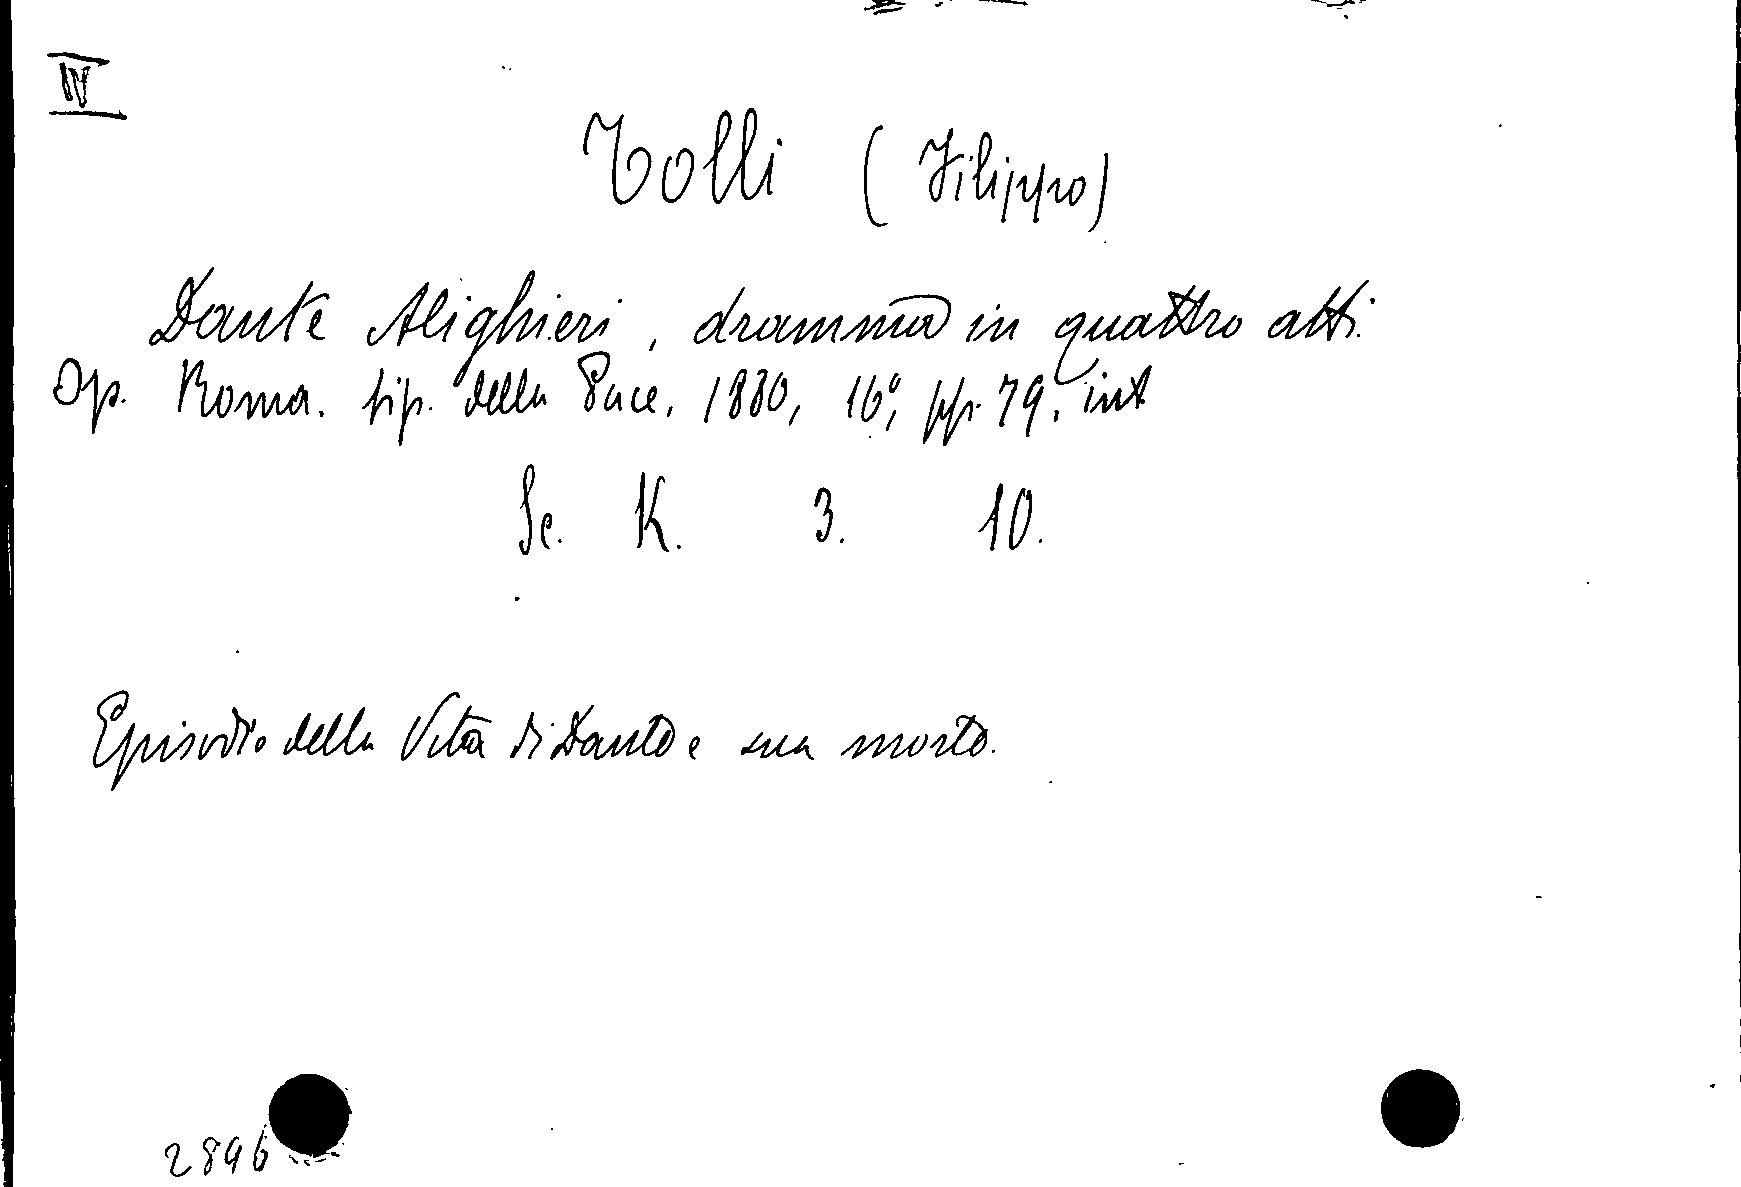 IV
Tolli (Filippo)
Dante Alighieri, dramma in quattro atti.
Op. Roma. tip. della Pace, 1880, 16°, pp. 79. int
Sc. K. 3. 10.
Episodio della Vita di Dante e sua morte.
2896